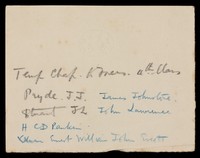 Temp Chap. 4th Class
Pryde J.J. James Johnston
Stuart J L John Lawrence
H C D Parker
William John Scott